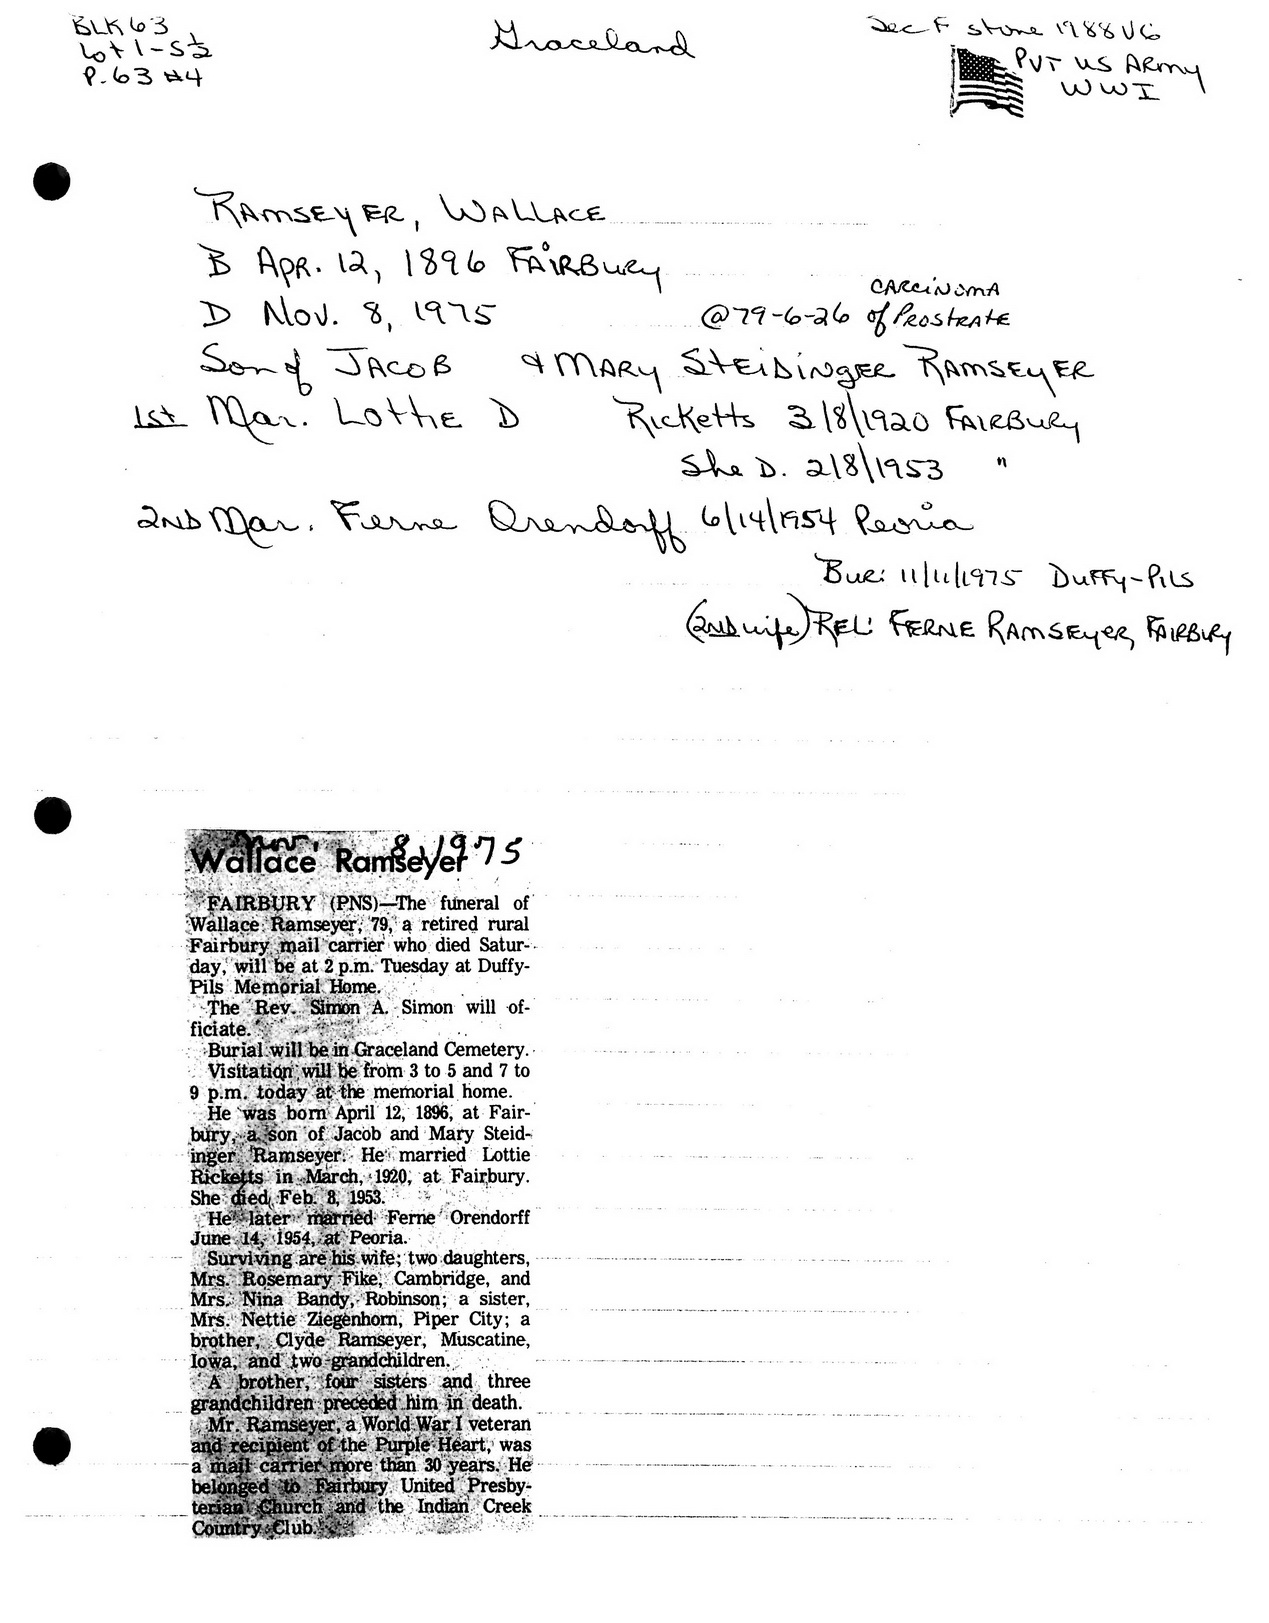 BLK 63
Lot 1-S½
P. 63 #4
Graceland
Sec F stone 1988 VG
PVT US ARMY
WWI
RAMSEYER, WALLACE
B Apr. 12, 1896 FAIRBURY
D Nov. 8, 1975 @79-6-26 of PROSTRATE
CARCINOMA
Son of JACOB & MARY STEIDINGER RAMSEYER
1st Mar. Lottie D Ricketts 3/8/1920 FAIRBURY
She D. 2/8/1953 "
2ND Mar. Ferne Orendorff 6/14/1954 Peoria
Bur: 11/11/1975 Duffy-Pils
(2ND wife) REL: FERNE RAMSEYER, FAIRBURY
Nov. 8, 1975
Wallace Ramseyer
FAIRBURY (PNS)—The funeral of
Wallace Ramseyer, 79, a retired rural
Fairbury mail carrier who died Satur-
day, will be at 2 p.m. Tuesday at Duffy-
Pils Memorial Home.
The Rev. Simon A. Simon will of-
ficiate.
Burial will be in Graceland Cemetery.
Visitation will be from 3 to 5 and 7 to
9 p.m. today at the memorial home.
He was born April 12, 1896, at Fair-
bury, a son of Jacob and Mary Steid-
inger Ramseyer. He married Lottie
Ricketts in March, 1920, at Fairbury.
She died Feb. 8, 1953.
He later married Ferne Orendorff
June 14, 1954, at Peoria.
Surviving are his wife; two daughters,
Mrs. Rosemary Fike, Cambridge, and
Mrs. Nina Bandy, Robinson; a sister,
Mrs. Nettie Ziegenhorn, Piper City; a
brother, Clyde Ramseyer, Muscatine,
Iowa, and two grandchildren.
A brother, four sisters and three
grandchildren preceded him in death.
Mr. Ramseyer, a World War I veteran
and recipient of the Purple Heart, was
a mail carrier more than 30 years. He
belonged to Fairbury United Presby-
terian Church and the Indian Creek
Country Club.